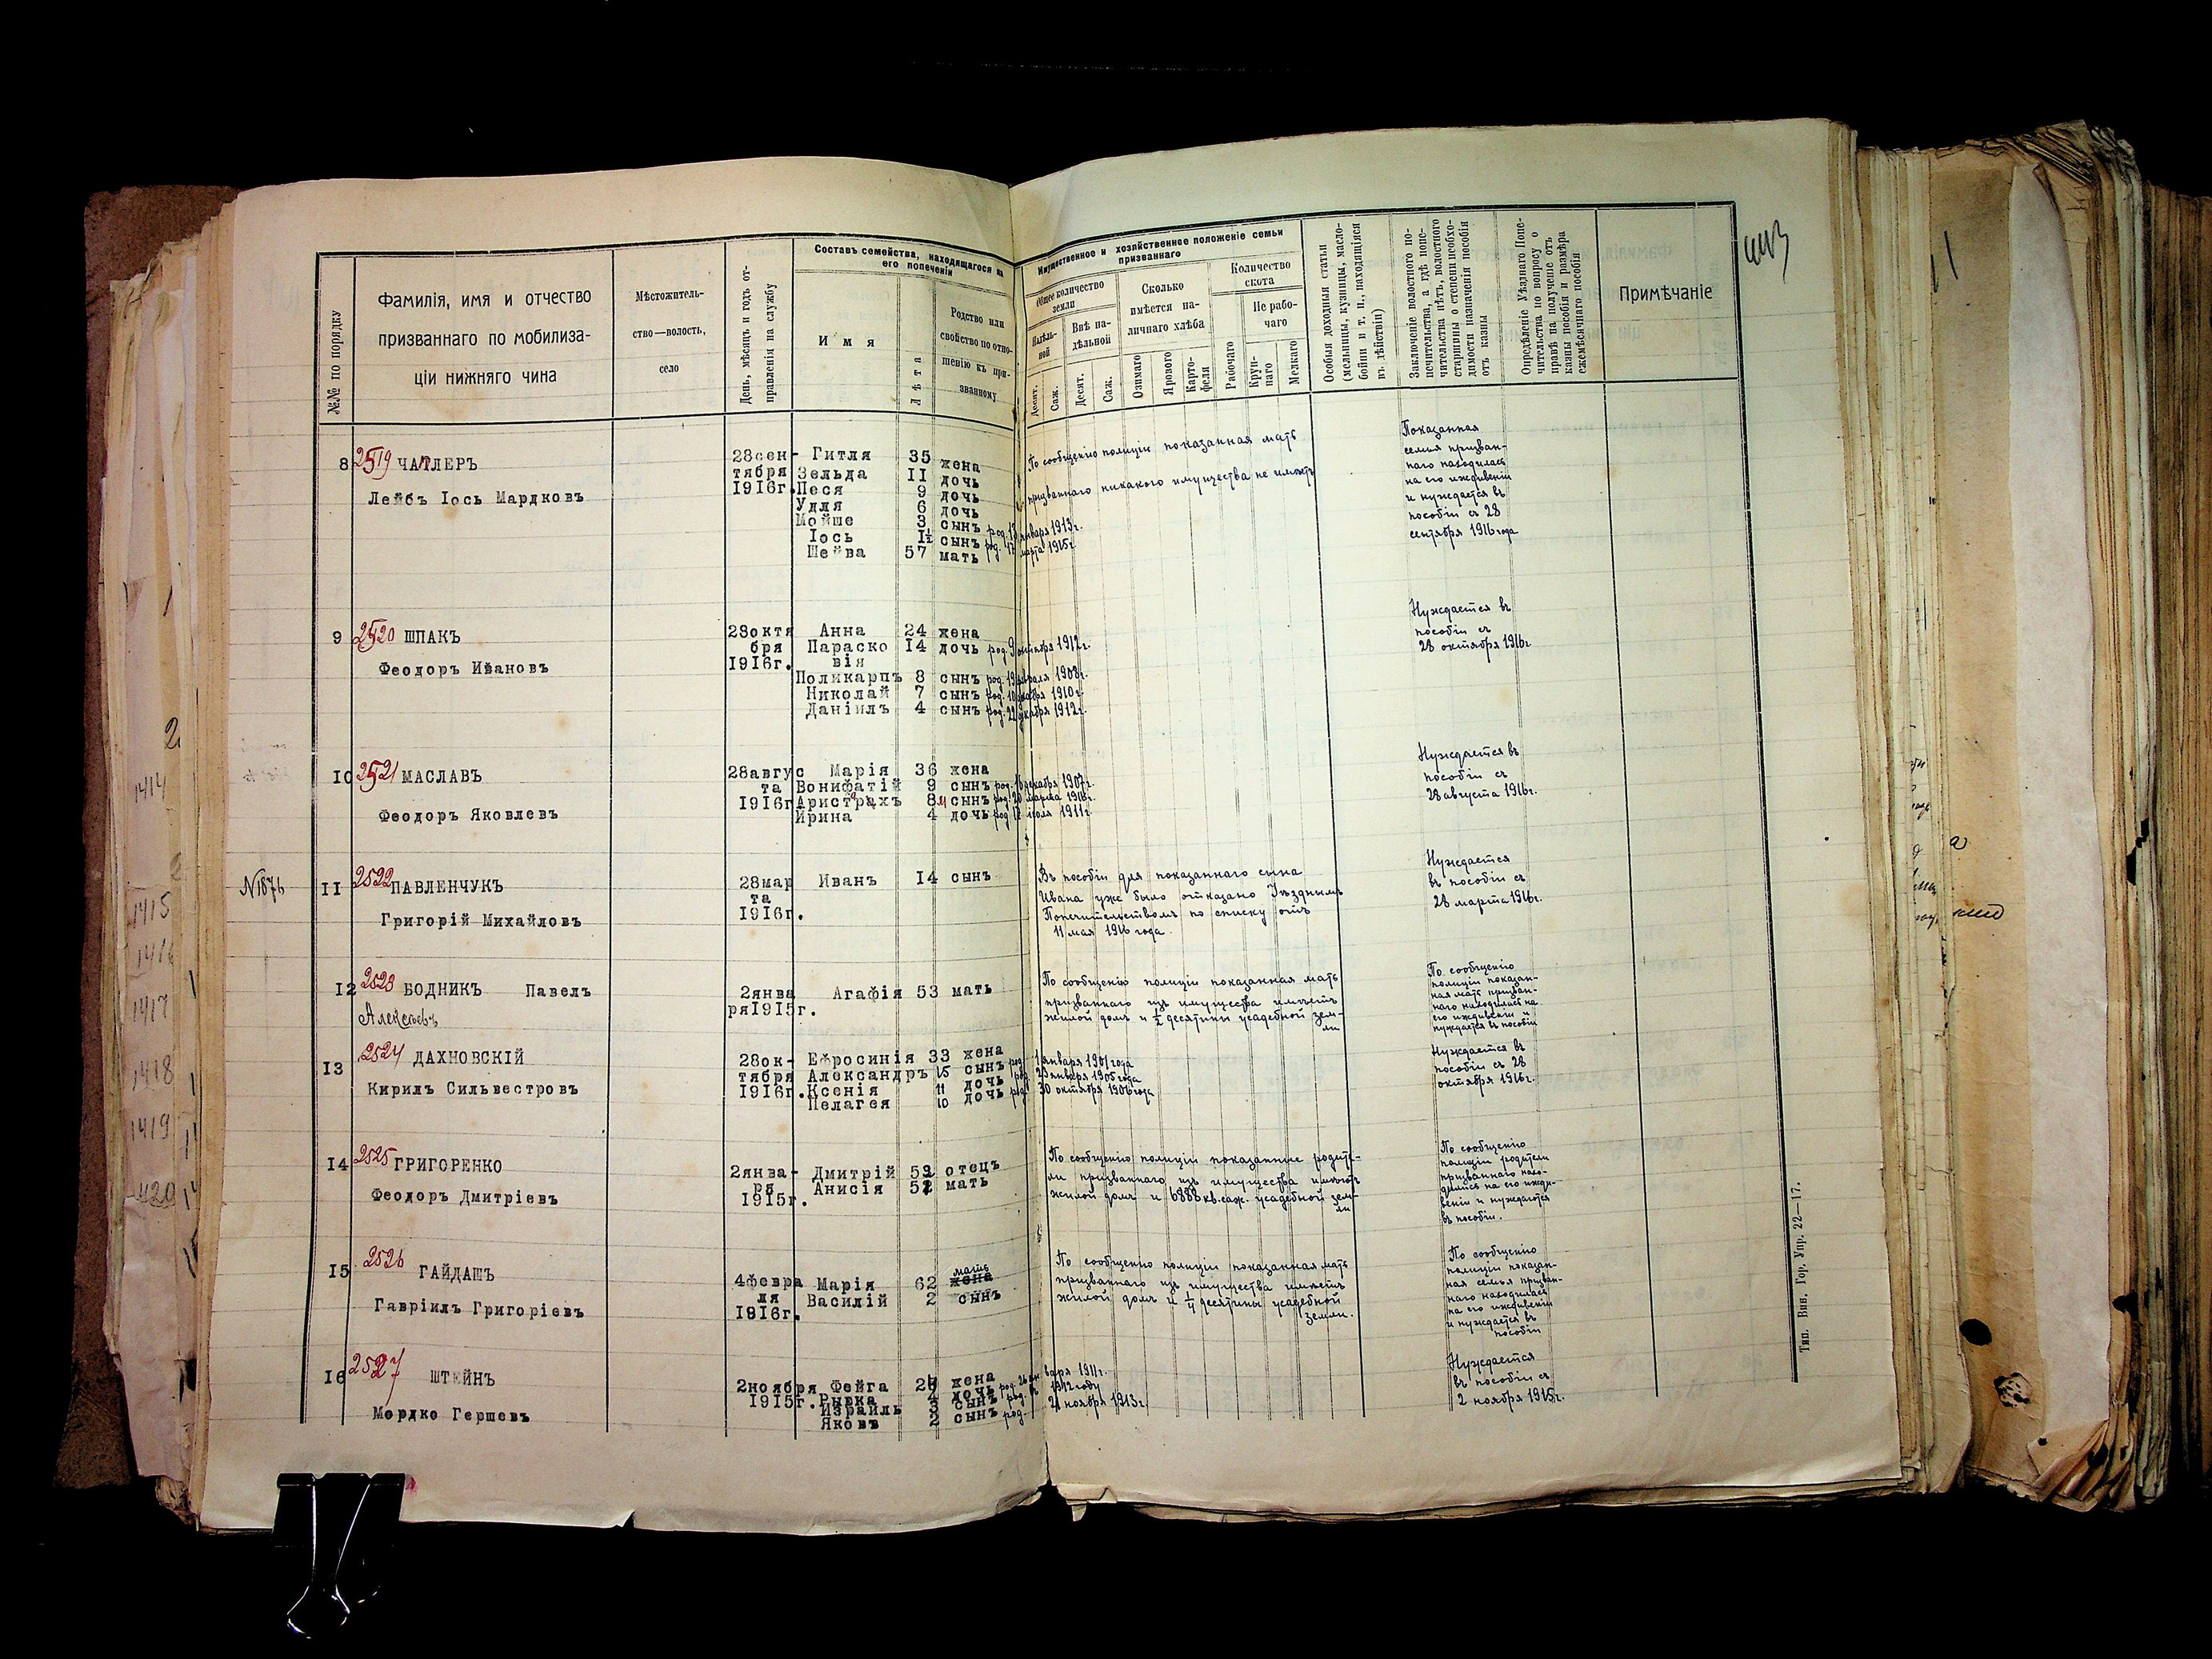 №№ по порядку
Фамилія, имя и отчество
призваннаго по мобилиза-
ціи нижняго чина
Мѣстожитель-
ство—волость,
село
День, мѣсяцъ и годъ от-
правленія на службу
Составъ семейства, находящагося на
его попеченіи
Имя
Лѣта
Родство или
свойство по отно-
шенію къ при-
званному
Имущественное и хозяйственное положеніе семьи
призваннаго
Общее количество
земли
Надѣль-
ной
Внѣ на-
дѣльной
Десят.
Саж.
Десят.
Саж.
Сколько
имѣется на-
личнаго хлѣба
Озимаго
Ярового
Карто-
феля
Количество
скота
Рабочаго
Не рабо-
чаго
Круп-
наго
Мелкаго
Особыя доходныя статьи
(мельницы, кузницы, масло-
бойни и т. п., находящіяся
въ дѣйствіи)
Заключеніе волостного по-
печительства, а гдѣ попе-
чительства нѣтъ, волостного
старшины о степени необхо-
димости назначенія пособія
отъ казны
Опредѣленіе Уѣзднаго Попе-
чительства по вопросу о
правѣ на полученіе отъ
казны пособія и размѣра
ежемѣсячнаго пособія
Примѣчаніе
8 2519 ЧАТЛЕРЪ
Лейбъ Іось Мардковъ
28сен-
тября
1916г.
Гитля 35 жена
Зельда 11 дочь
Песя 9 дочь
Удля 6 дочь
Мойше 3 сынъ род. 13 января 1913г.
Іось 1½ сынъ род. 17 марта 1915г.
Шейва 57 мать
По сообщенію полиціи показанная мать
призваннаго никакого имущества не имѣетъ
Показанная
семья призван-
наго находилась
на его иждивеніи
и нуждается въ
пособіи съ 28
сентября 1916 года
9 2520 ШПАКЪ
Феодоръ Ивановъ
28октя
бря
1916г.
Анна 24 жена
Параско 14 дочь род. 9 октября 1912г.
вія
Поликарпъ 8 сынъ род. 19 февраля 1908г.
Николай 7 сынъ род. 10 декабря 1910г.
Даніилъ 4 сынъ род. 22 декабря 1912г.
Нуждается въ
пособіи съ
28 октября 1916г.
10 2521 МАСЛАВЪ
Феодоръ Яковлевъ
28авгус
та
1916г.
Марія 36 жена
Вонифатій 9 сынъ род. 16 декабря 1907г.
Аристрахъ 8м сынъ род. 20 марта 1916г.
Ирина 4 дочь род. 12 іюля 1911г.
Нуждается въ
пособіи съ
28 августа 1916г.
11 2522 ПАВЛЕНЧУКЪ
Григорій Михайловъ
28мар
та
1916г.
Иванъ 14 сынъ
Въ пособіи для показаннаго сына
Ивана уже было отказано Уѣзднымъ
Попечительствомъ по списку отъ
11 мая 1916 года.
Нуждается
въ пособіи съ
28 марта 1916г.
12 2523 БОДНИКЪ Павелъ
Алексѣевъ
2янва
ря1915г.
Агафія 53 мать
По сообщенію полиціи показанная мать
призваннаго изъ имущества имѣетъ
жилой домъ и ½ десятины усадебной зем-
ли
По сообщенію
полиціи показан-
ная мать призван-
наго находилась на
его иждивеніи и
нуждается въ пособіи
13 2524 ДАХНОВСКІЙ
Кирилъ Сильвестровъ
28ок-
тября
1916г.
Ефросинія 33 жена
Александръ 15 сынъ род. 1 января 1901 года
Ксенія 11 дочь род. 23 января 1905 года
Пелагея 10 дочь род. 30 октября 1906 года
Нуждается въ
пособіи съ 28
октября 1916г.
14 2525 ГРИГОРЕНКО
Феодоръ Дмитріевъ
2янва-
ря
1915г.
Дмитрій 53 отецъ
Анисія 52 мать
По сообщенію полиціи показанные родите-
ли призваннаго изъ имущества имѣютъ
жилой домъ и 6888 кв. саж. усадебной зем-
ли
По сообщенію
полиціи родители
призваннаго нахо-
дились на его ижди-
веніи и нуждаются
въ пособіи.
15 2526 ГАЙДАШЪ
Гавріилъ Григоріевъ
4февра
ля
1916г.
мать
Марія 62 жена
Василій 2 сынъ
По сообщенію полиціи показанная мать
призваннаго изъ имущества имѣетъ
жилой домъ и ¼ десятины усадебной
земли.
По сообщенію
полиціи показан-
ная семья призван-
наго находилась
на его иждивеніи
и нуждается въ
пособіи
16 2527 ШТЕЙНЪ
Мордко Гершевъ
2ноября
1915г.
Фейга жена
Рывка 4 дочь род. 26 января 1911г.
Израиль 3 сынъ род. въ 1912 году
Яковъ 2 сынъ род. 21 ноября 1913г.
Нуждается
въ пособіи съ
2 ноября 1915г.
Тип. Вин. Гор. Упр. 22—17.
1414
1415
1416
1417
1418
1419
1420